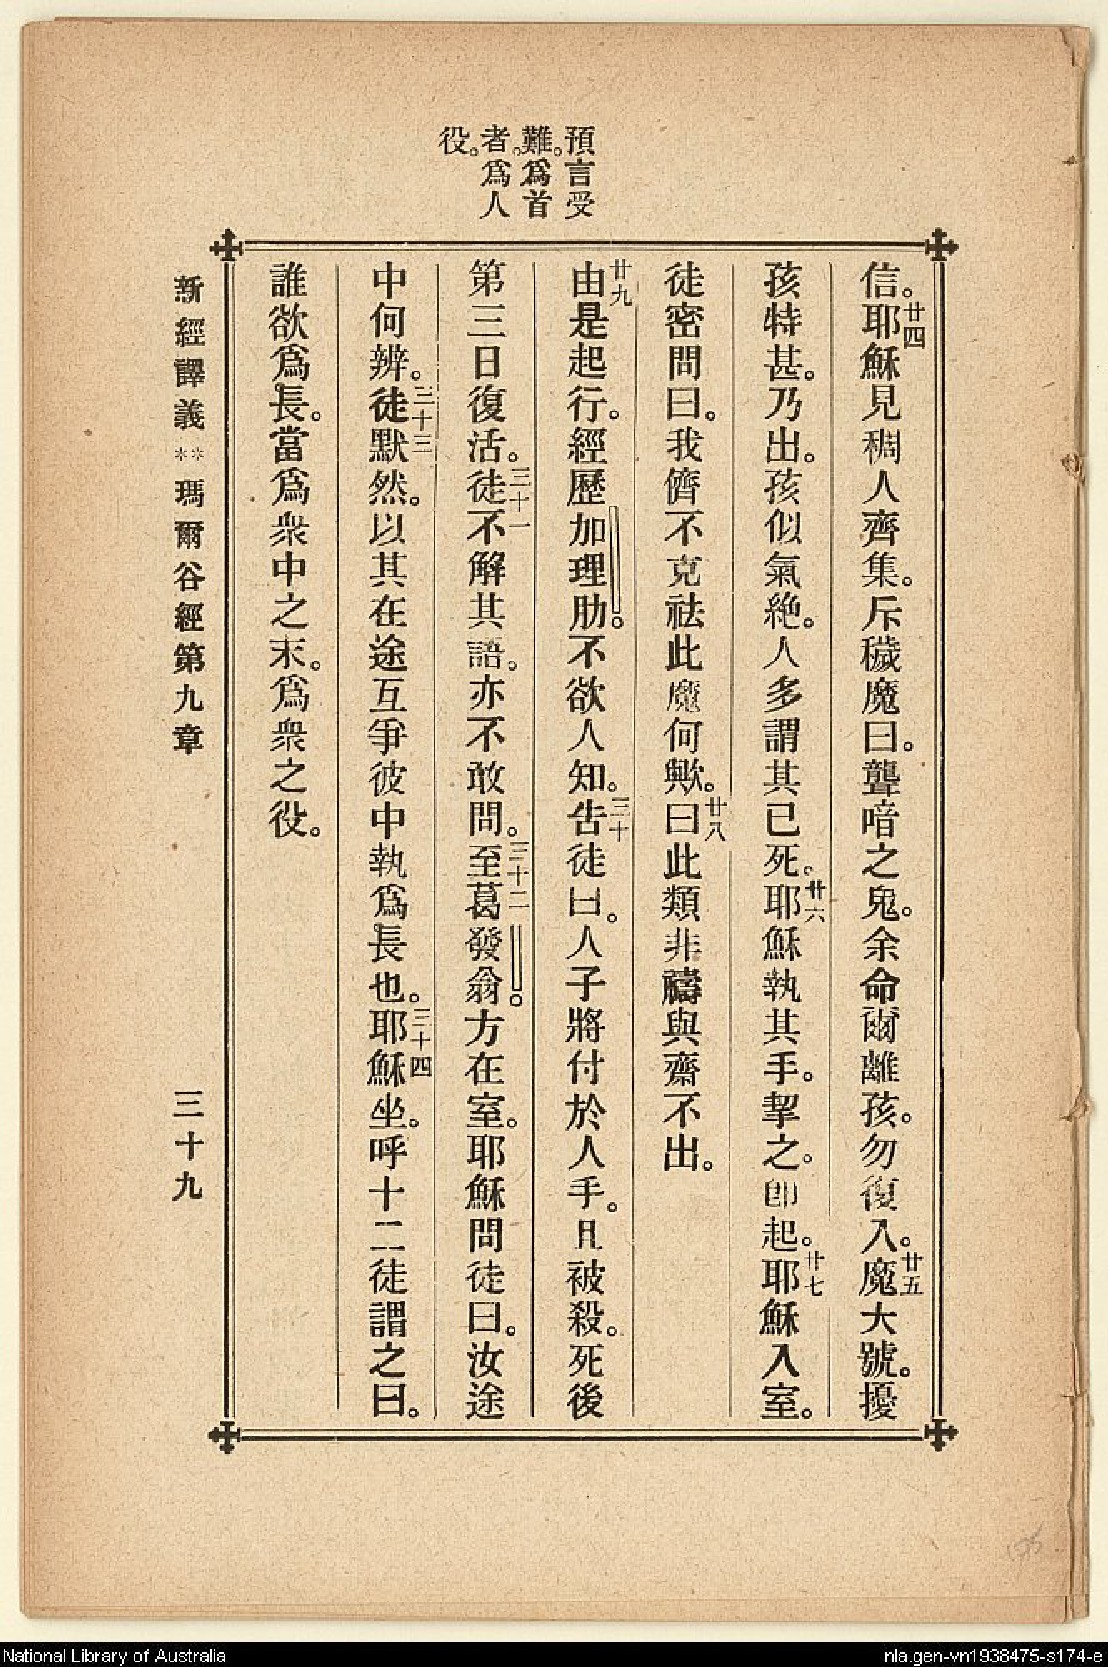 預言受
難。爲首
者。爲人
役。
信。廿四耶穌見稠人齊集。斥穢魔曰。聾喑之鬼。余命爾離孩。勿復入。廿五魔大號。擾
孩特甚。乃出。孩似氣絶。人多謂其已死。廿六耶穌執其手。挈之。卽起。廿七耶穌入室。
徒密問曰。我儕不克祛此魔何歟。廿八曰此類非禱與齋不出。
廿九由是起行。經歷加理肋。不欲人知。三十告徒曰。人子將付於人手。且被殺。死後
第三日復活。三十一徒不解其語。亦不敢問。三十二至葛發翁。方在室。耶穌問徒曰。汝途
中何辨。三十三徒默然。以其在途互爭彼中孰爲長也。三十四耶穌坐。呼十二徒謂之曰。
誰欲爲長。當爲衆中之末。爲衆之役。
新經譯義**瑪爾谷經第九章 三十九
National Library of Australia
nla.gen-vn1938475-s174-e